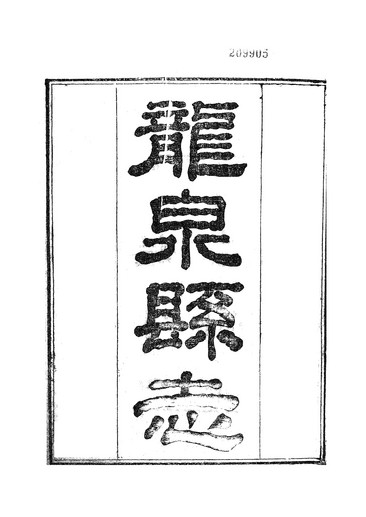 209905
龍泉縣志